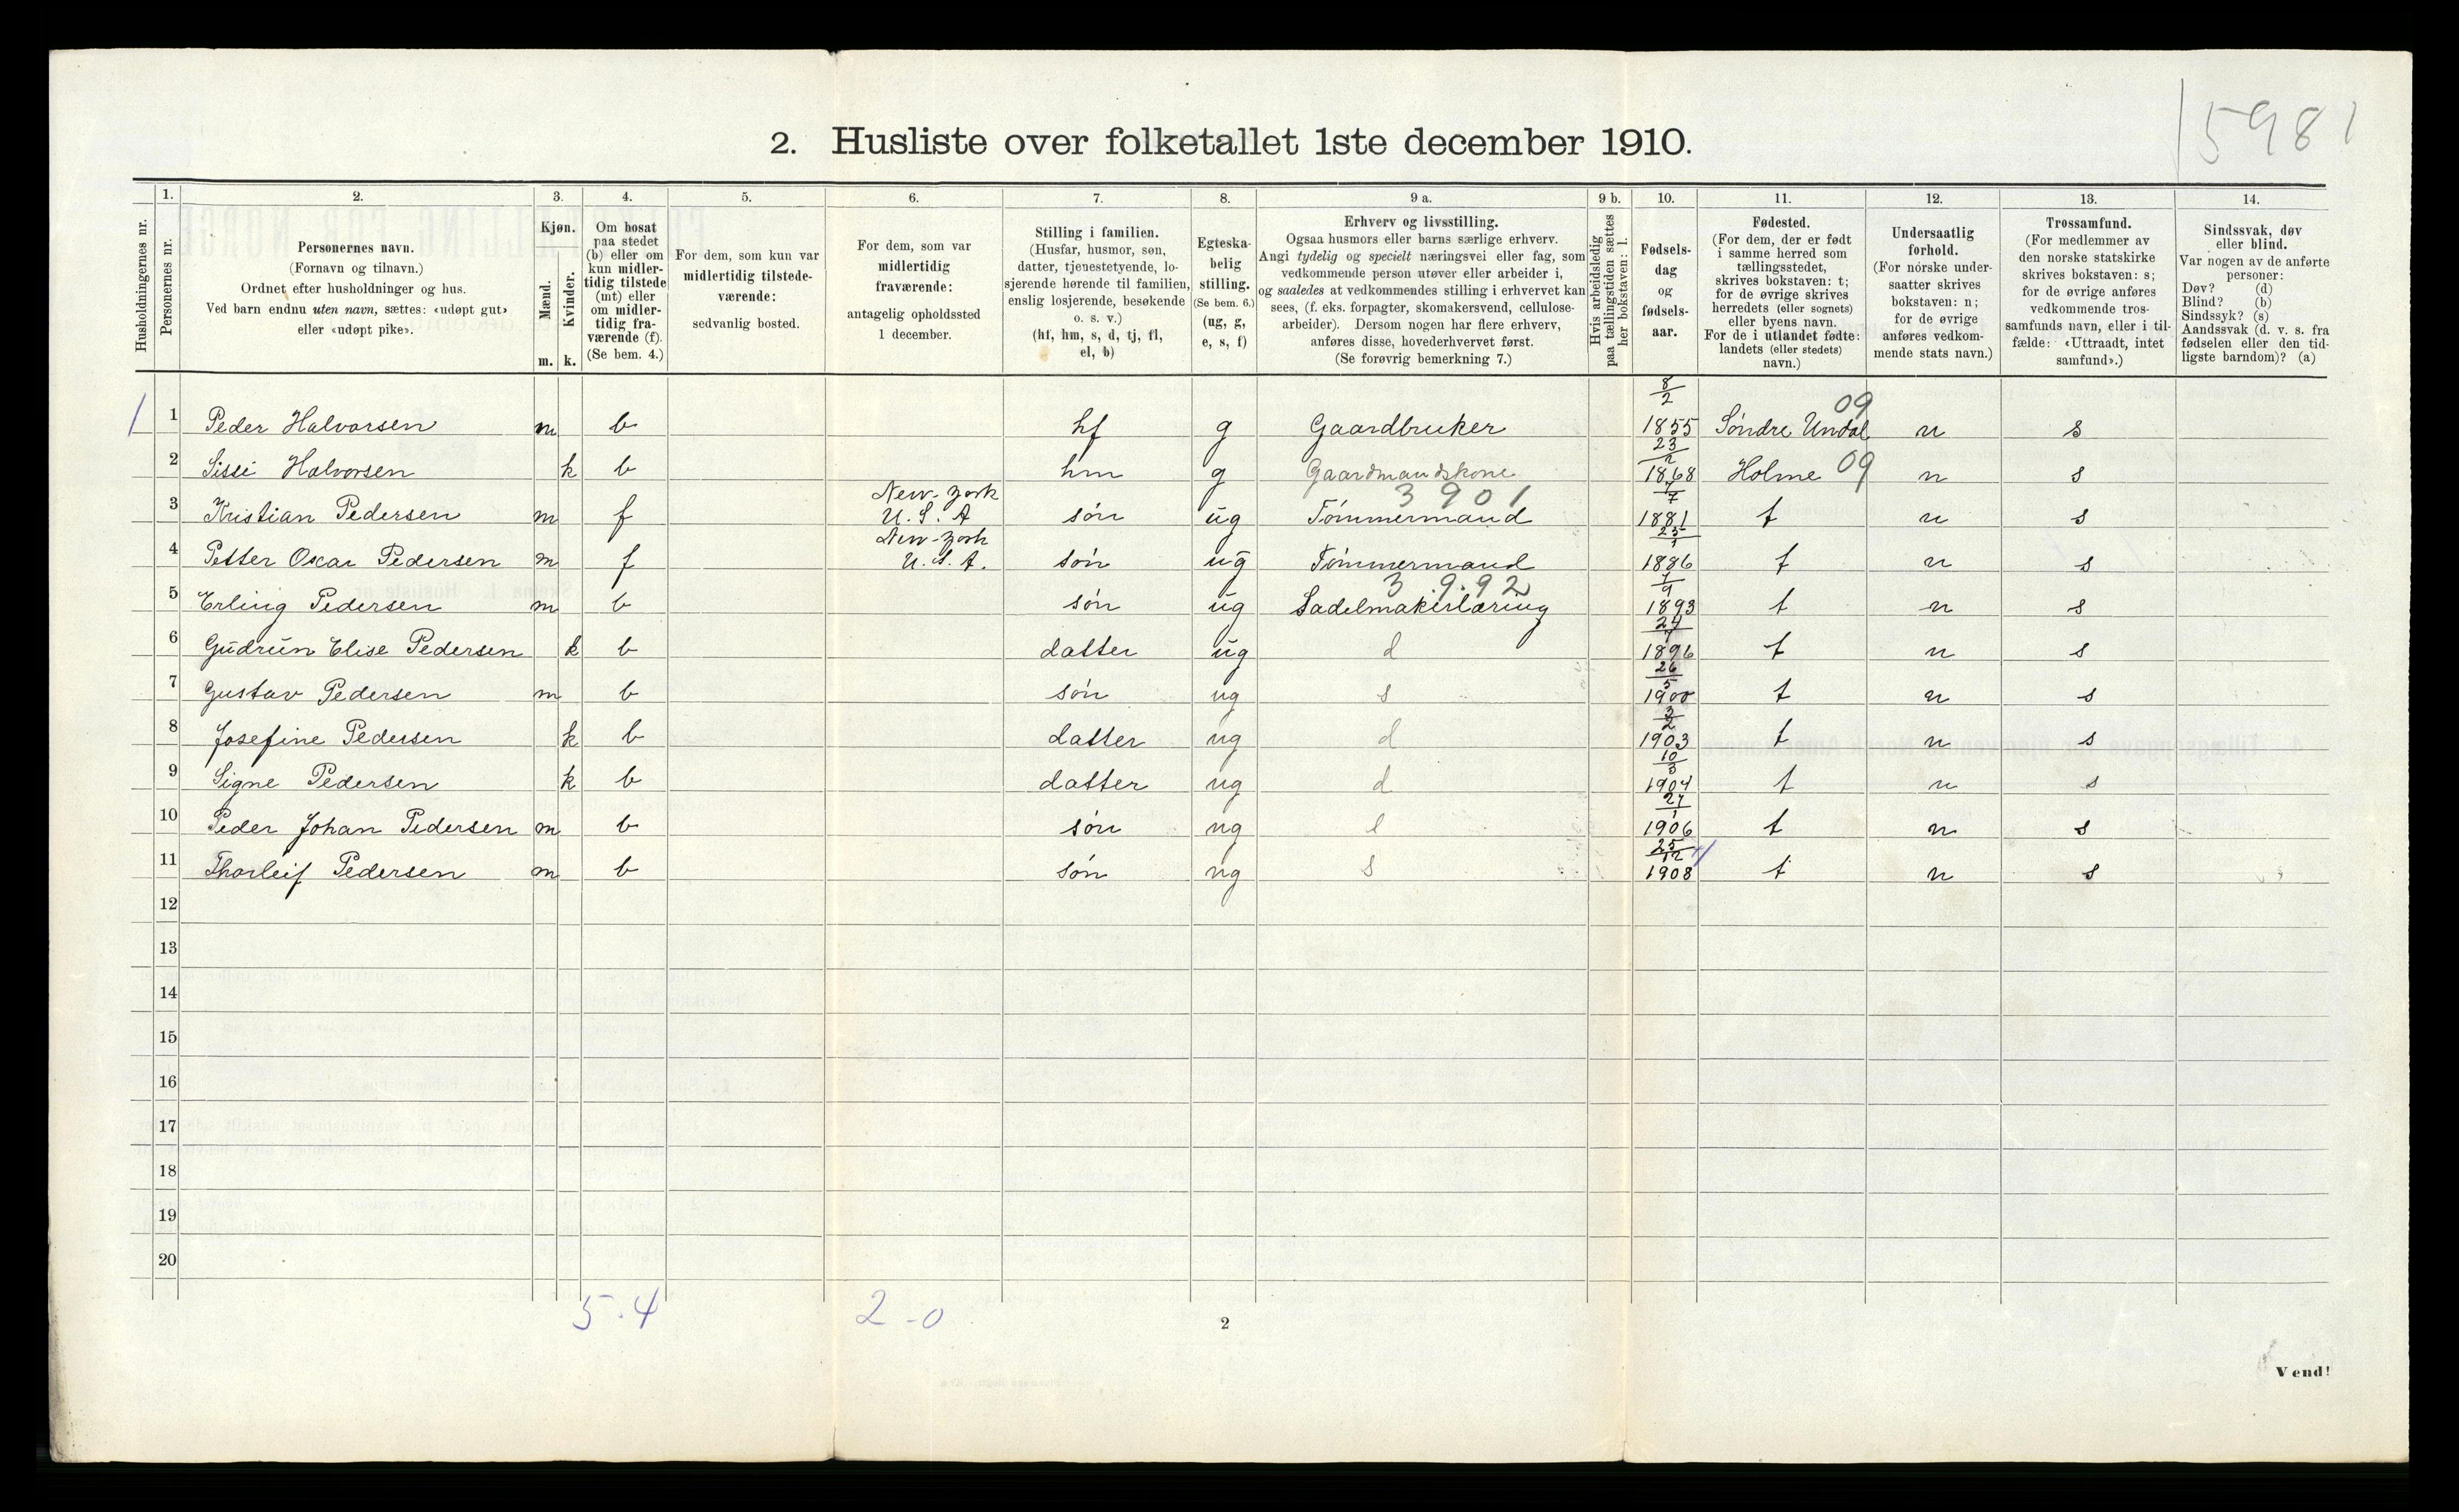 15981
2. Husliste over folketallet 1ste december 1910.
Husholdningernes nr.
1.
Personernes nr.
2.
Personernes navn.
(Fornavn og tilnavn.)
Ordnet efter husholdninger og hus.
Ved barn endnu uten navn, sættes: «udøpt gut»
eller «udøpt pike».
3.
Kjøn.
Mænd.
Kvinder.
m. k.
4.
Om bosat
paa stedet
(b) eller om
kun midler-
tidig tilstede
(mt) eller
om midler-
tidig fra-
værende (f).
(Se bem. 4.)
5.
For dem, som kun var
midlertidig tilstede-
værende:
sedvanlig bosted.
6.
For dem, som var
midlertidig
fraværende:
antagelig opholdssted
1 december.
7.
Stilling i familien.
(Husfar, husmor, søn,
datter, tjenestetyende, lo-
sjerende hørende til familien,
enslig losjerende, besøkende
o. s. v.)
(hf, hm, s, d, tj, fl,
el, b)
8.
Egteska-
belig
stilling.
(Se bem. 6.)
(ug, g,
e, s, f)
9 a.
Erhverv og livsstilling.
Ogsaa husmors eller barns særlige erhverv.
Angi tydelig og specielt næringsvei eller fag, som
vedkommende person utøver eller arbeider i,
og saaledes at vedkommendes stilling i erhvervet kan
sees, (f. eks. forpagter, skomakersvend, cellulose-
arbeider). Dersom nogen har flere erhverv,
anføres disse, hovederhvervet først.
(Se forøvrig bemerkning 7.)
9 b.
Hvis arbeidsledig
paa tællingstiden sættes
her bokstaven: l.
10.
Fødsels-
dag
og
fødsels-
aar.
11.
Fødested.
(For dem, der er født
i samme herred som
tællingsstedet,
skrives bokstaven: t;
for de øvrige skrives
herredets (eller sognets)
eller byens navn.
For de i utlandet fødte:
landets (eller stedets)
navn.)
12.
Undersaatlig
forhold.
(For norske under-
saatter skrives
bokstaven: n;
for de øvrige
anføres vedkom-
mende stats navn.)
13.
Trossamfund.
(For medlemmer av
den norske statskirke
skrives bokstaven: s;
for de øvrige anføres
vedkommende tros-
samfunds navn, eller i til-
fælde: «Uttraadt, intet
samfund».)
14.
Sindssvak, døv
eller blind.
Var nogen av de anførte
personer:
Døv? (d)
Blind? (b)
Sindssyk? (s)
Aandssvak (d. v. s. fra
fødselen eller den tid-
ligste barndom)? (a)
1 1 Peder Halvorsen m b hf g Gaardbruker 8/2 1855 Søndre Undal 09 n s
2 Sissi Halvorsen k b hm g Gaardmandskone 23/2 1868 Holme 09 n s
3 Kristian Pedersen m f New-York U.S.A søn ug Tømmermand 3901 7/7 1881 t n s
4 Petter Oscar Pedersen m f New-York U.S.A. søn ug Tømmermand 23/1 1886 t n s
5 Erling Pedersen m b søn ug Sadelmakerlæring 3.9.92 7/9 1893 t n s
6 Gudrun Elise Pedersen k b datter ug d 24/7 1896 t n s
7 Gustav Pedersen m b søn ug s 26/5 1900 t n s
8 Josefine Pedersen k b datter ug d 3/2 1903 t n s
9 Signe Pedersen k b datter ug d 10/3 1904 t n s
10 Peder Johan Pedersen m b søn ug 27/1 1906 t n s
11 Thorleif Pedersen m b søn ug s 25/12 1908 t n s
12
13
14
15
16
17
18
19
20
5.4 2-0
2
Vend!